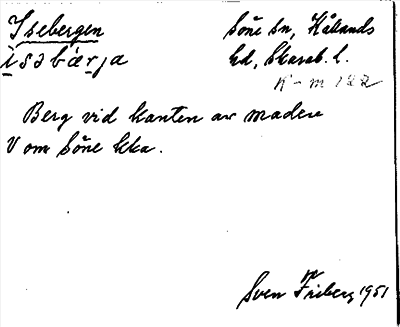 Isebergen
ìsəbǽrja
Söne sn, Kållands
hd, Skarab. l.
K-m 122
Berg vid kanten av maden
V om Söne kka.
Sven Friberg 1951